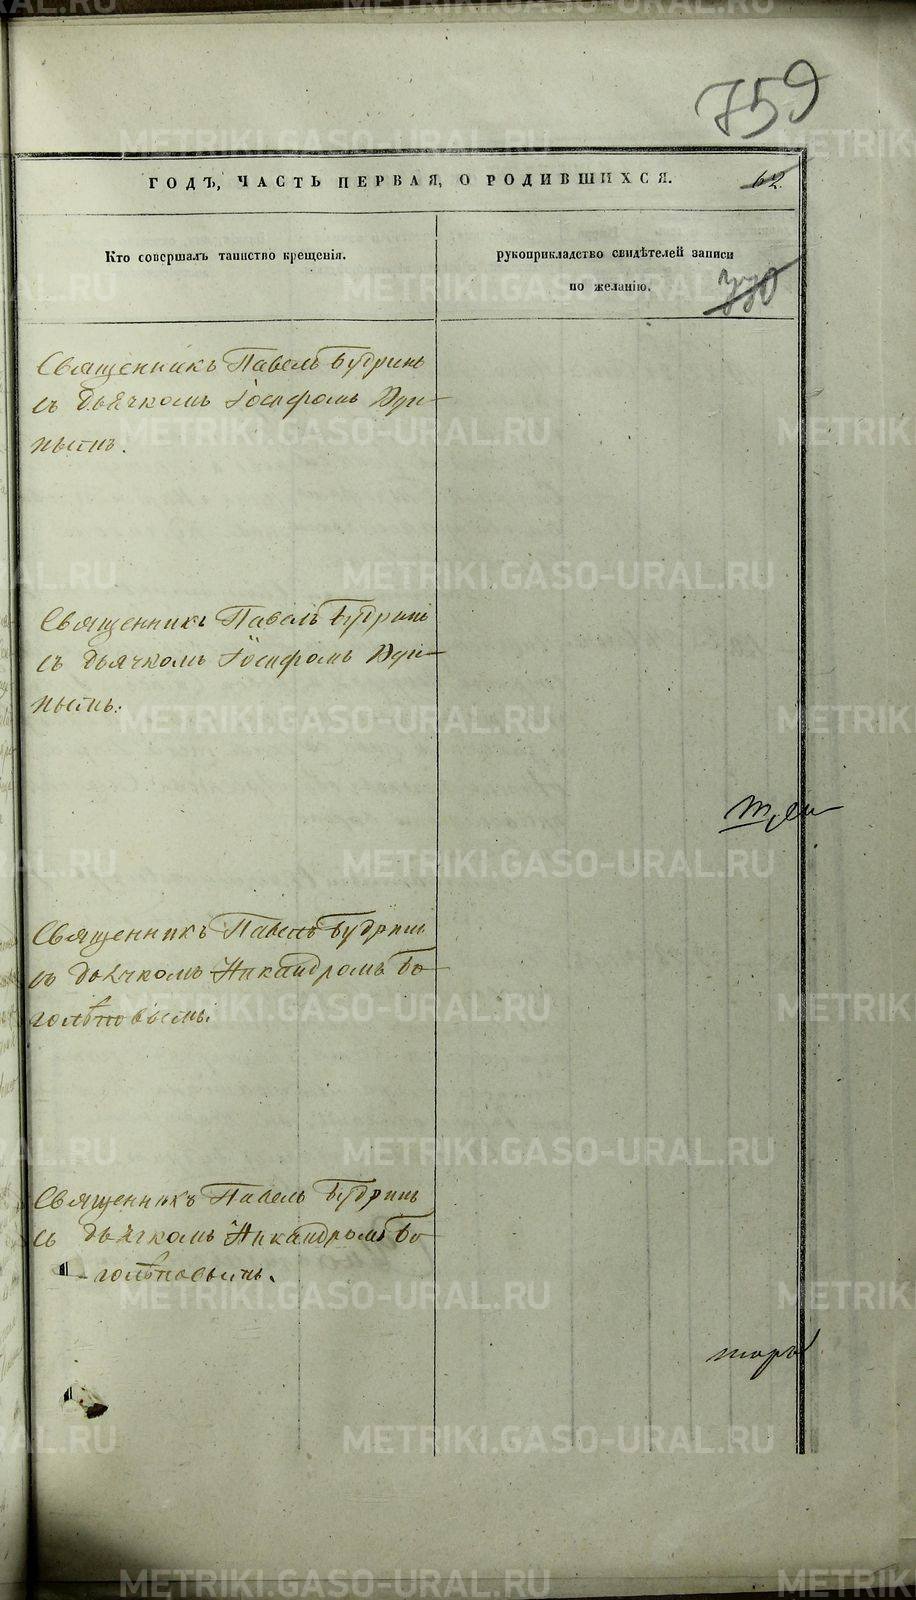 759
ГОДЪ, ЧАСТЬ ПЕРВАЯ, О РОДИВШИХСЯ.
62.
Кто совершалъ таинство крещенія.
рукоприкладство свидѣтелей записи
по желанію.
Священникъ Павелъ Будринъ
съ дьячкомъ Іосифомъ
Священникъ Павелъ Будринъ
съ дьячкомъ Іосифомъ
Священникъ Павелъ Будринъ
съ дьячкомъ Никандромъ Бо-
голѣповымъ.
Священникъ Павелъ Будринъ
съ дьячкомъ Никандромъ Бо-
голѣповымъ.
METRIKI.GASO-URAL.RU